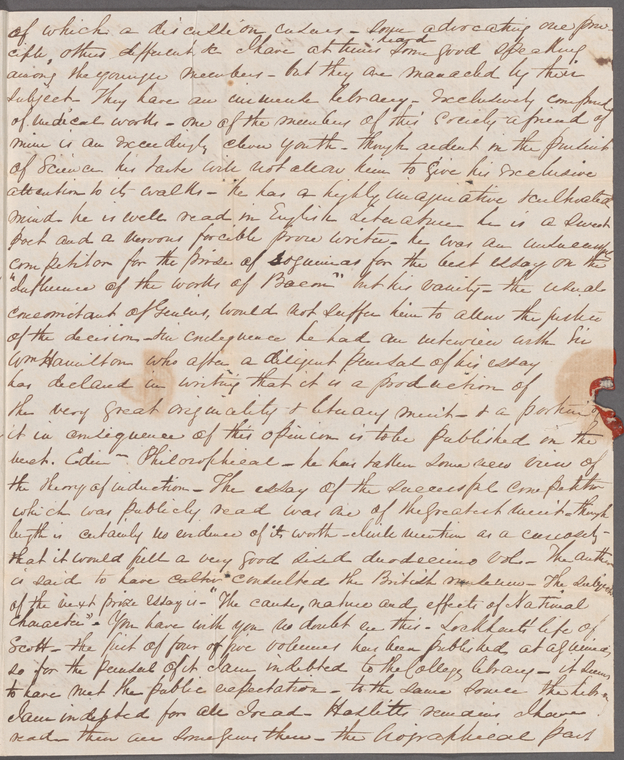 of which a discussion ensues - some advocating one prin-
ciple, others different & I have at times heard some good speaking
among the younger members - but they are managed by their
subject - They have an immense library - exclusively composed
of medical works - one of the members of this Society a friend of
mine is an exceedingly clever youth - though ardent in the pursuit
of Science his taste will not allow him to give his exclusive
attention to its walks - He has a highly imaginative & cultivated
mind he is well read in English Literature he is a sweet
poet and a nervous forcible prose writer - he was an unsuccessful
competitor for the prize of guineas for the best essay on the
"Influence of the works of Bacon" but his vanity - the usual
concomitant of Genius, would not suffer him to allow the justice
of the decision - in consequence he had an interview with Sir
Wm Hamilton who after a diligent perusal of his essay
has declared in writing that it is a production of
the very great originality & literary merit - & a portion of
it in consequence of this opinion is to be published in the
next. Edinn Philosophical - he has taken some new view of
the theory of induction - The essay of the successful competitor
which was publicly read was one of the greatest merit - though
length is certainly no evidence of its worth - I will mention as a curiosity
that it would fill a very good sized duodecimo vol - The author
is said to have consulted the British museum - The subject
of the next prize essay is - "The cause, nature and effects of National
Character" - You have with you no doubt ere this - Lockharts life of
Scott - the first of four or five volumes has been published at a guinea,
so for the perusal of it I am indebted to the College library - it seems
to have met the public expectation - to the same source the library
I am indebted for all I read - Hazlitts remains I have
read them are some gems there - the biographical part